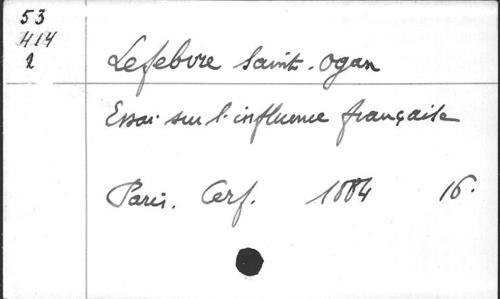 53
414
2
Lefebvre Saint-Ogan
Essai sur l'influence française
Paris. Cerf. 1884 16.